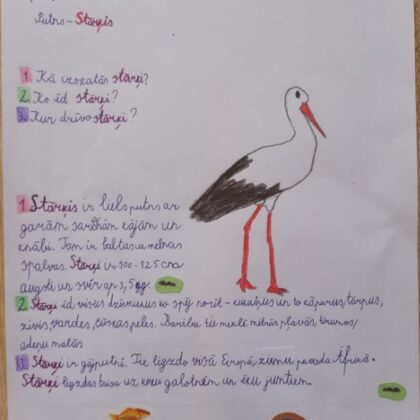 Putns - Stārķis
1. Kā izskatās stārķi?
2. Ko ēd stārķi?
3. Kur dzīvo stārķi?
1. Stārķis ir liels putns ar
garām sarkanām kājām un
knābi. Tam ir baltas un melnas
spalvas. Stārķi ir 100-125 cm
augsti un sver ap 3,5 kg.
2. Stārķi ēd visus dzīvniekus ko spēj norīt - kukaiņus un to kāpurus, tārpus,
zivis, vardes, čūskas, peles. Barību tie meklē mitrās pļavās, tīrumos,
ūdeņu malās
3. Stārķi ir gājputni. Tie ligzdo visā Eiropā, ziemu pavada Āfrikā.
Stārķi ligzdas taisa uz koku galotnēm un ēku jumtiem.